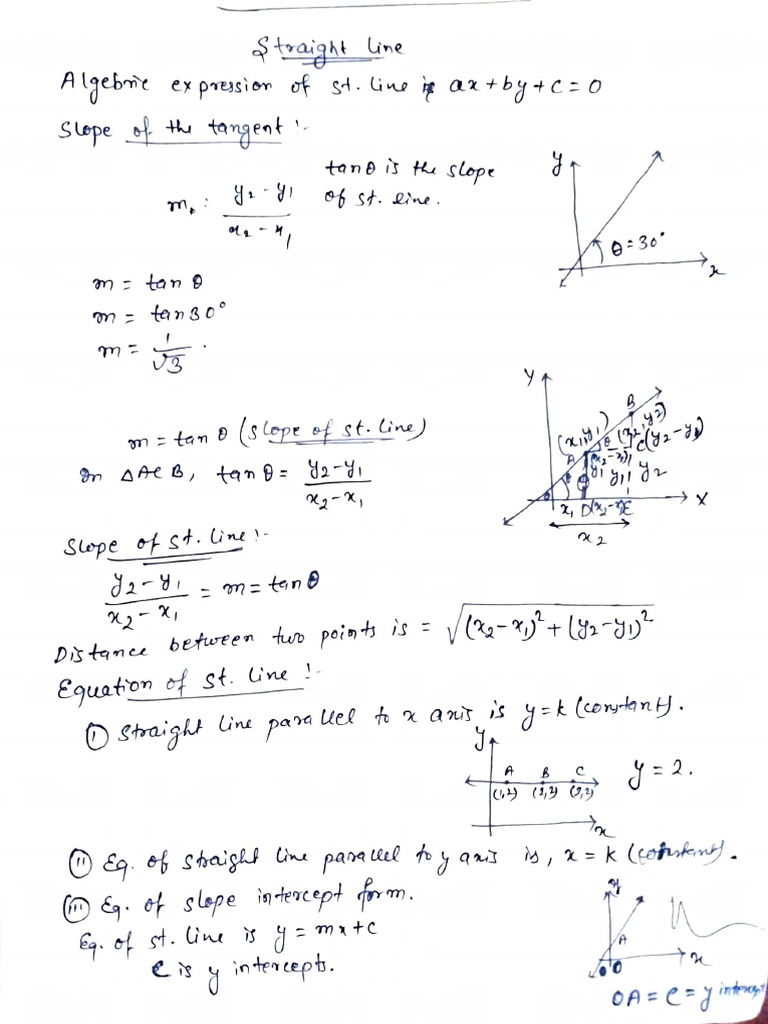 Straight line
Algebric expression of st. line is ax + by + c = 0
Slope of the tangent :-
tanθ is the slope
m = (y2 - y1) / (x2 - x1) of st. line.
y
θ = 30°
x
m = tan θ
m = tan 30°
m = 1/√3 .
m = tan θ (slope of st. line)
In △ACB, tan θ = (y2 - y1) / (x2 - x1)
Y
B
(x1, y1) θ (x2, y2)
A (x2 - x1) C (y2 - y1)
θ y1 y1 y2
x1 D (x2 - x1) E X
x2
Slope of st. line :-
(y2 - y1) / (x2 - x1) = m = tan θ
Distance between two points is = √((x2 - x1)² + (y2 - y1)²)
Equation of st. line :-
(i) Straight line parallel to x axis is y = k (constant).
y
A B C y = 2.
(1,2) (2,2) (3,2)
x
(ii) Eq. of straight line parallel to y axis is, x = k (constant).
(iii) Eq. of slope intercept form.
Eq. of st. line is y = mx + c
c is y intercepts.
y
A
O x
OA = c = y intercept